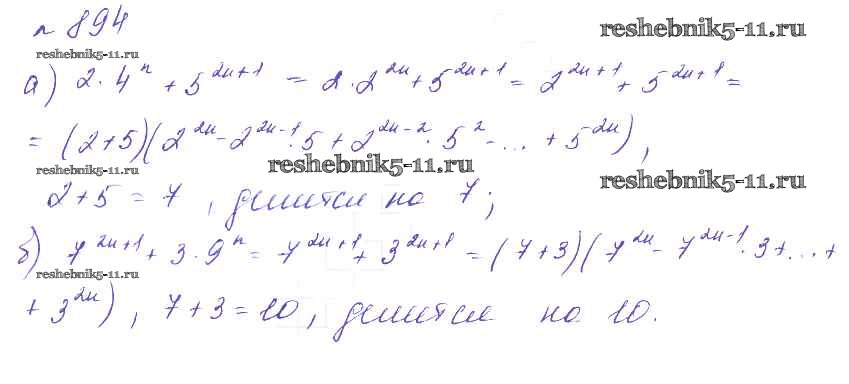 № 894
reshebnik5-11.ru
reshebnik5-11.ru
а) 2·4^n + 5^{2n+1} = 2·2^{2n} + 5^{2n+1} = 2^{2n+1} + 5^{2n+1} =
= (2+5)(2^{2n} - 2^{2n-1}·5 + 2^{2n-2}·5^2 - ... + 5^{2n}),
reshebnik5-11.ru
reshebnik5-11.ru
reshebnik5-11.ru
2+5 = 7, делится на 7;
б) 7^{2n+1} + 3·9^n = 7^{2n+1} + 3^{2n+1} = (7+3)(7^{2n} - 7^{2n-1}·3 + ... +
reshebnik5-11.ru
+ 3^{2n}), 7+3 = 10, делится на 10.